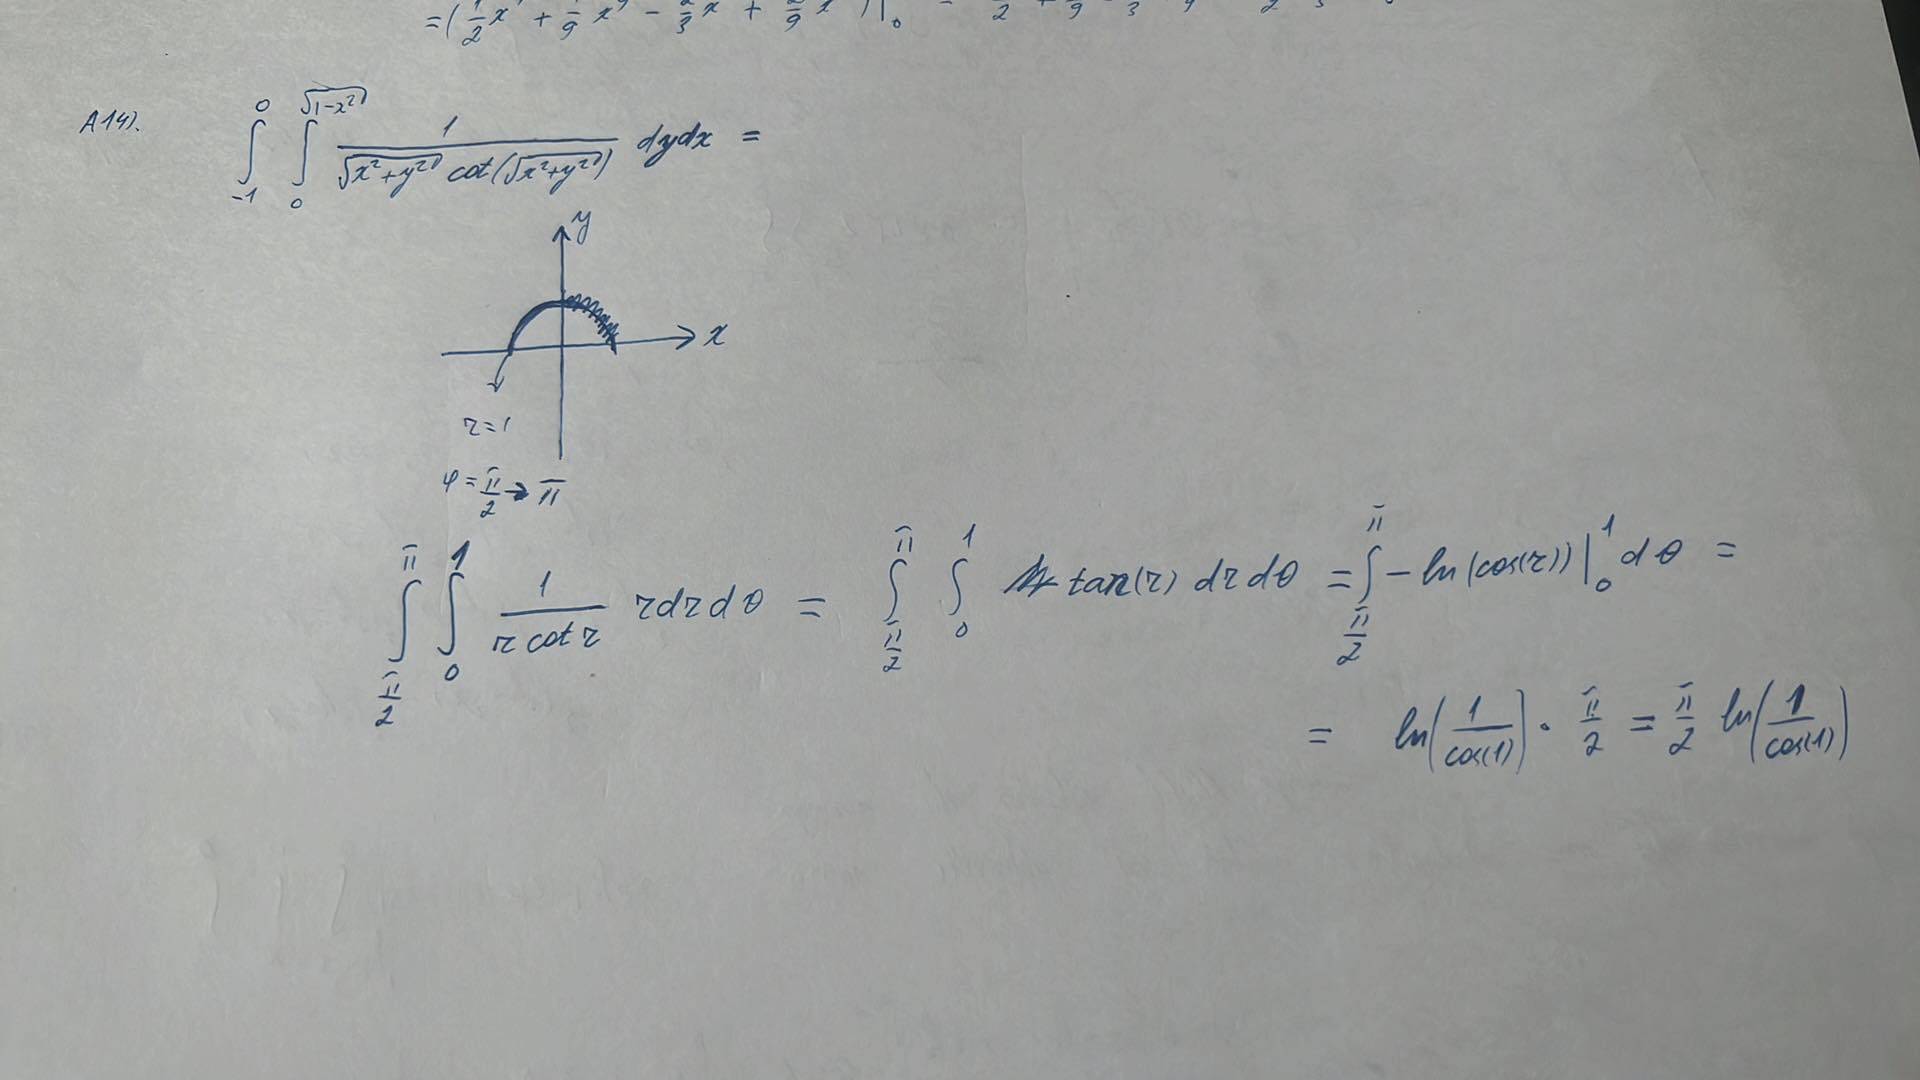 =(1/2 x + 1/9 x - 2/3 x + 2/9 x )|₀
A14). ∫₋₁⁰ ∫₀^√(1-x²) 1/(√(x²+y²) cot(√(x²+y²))) dydx =
y
x
r=1
φ = π/2 → π
∫_{π/2}^{π} ∫₀¹ 1/(r cot r) r dr dθ = ∫_{π/2}^{π} ∫₀¹ tan(r) dr dθ = ∫_{π/2}^{π} -ln(cos(r))|₀¹ dθ =
= ln(1/cos(1)) · π/2 = π/2 ln(1/cos(1))